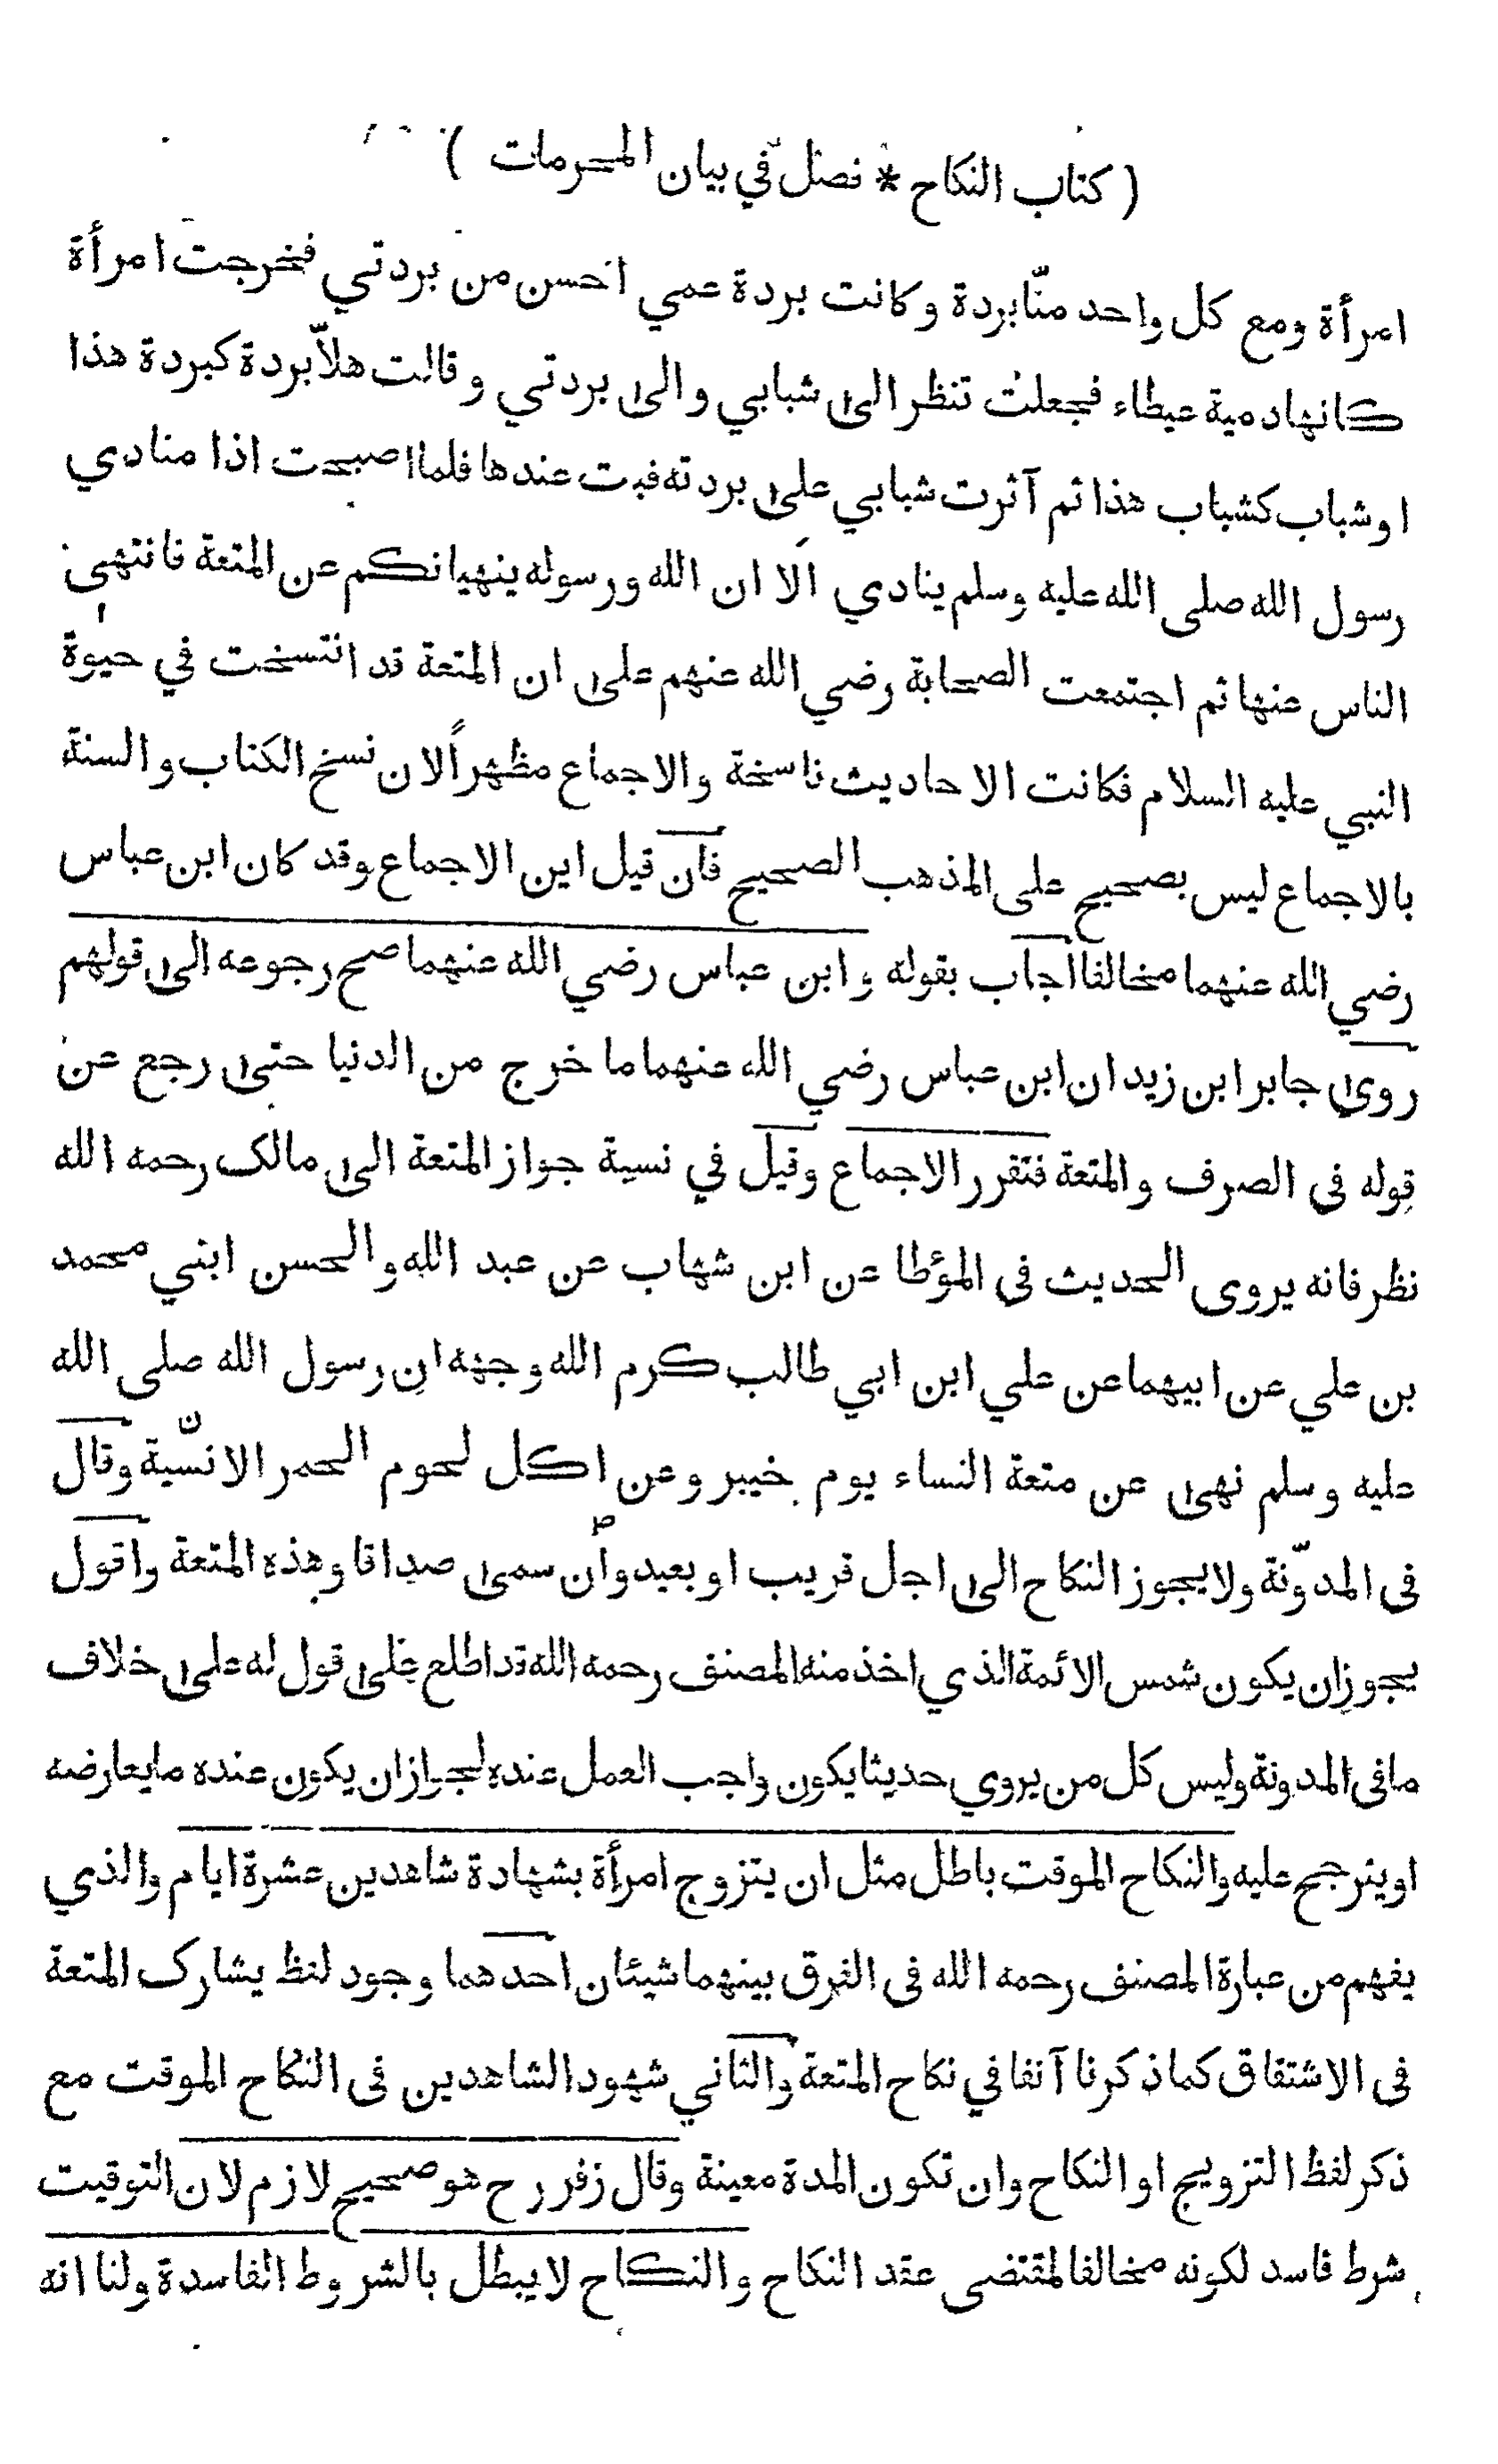 ( كتاب النكاح * فصل في بيان المحرمات )
امرأة ومع كل واحد منّا بردة وكانت بردة عمي احسن من بردتي فخرجت امرأة
كانها دمية عيطاء فجعلت تنظر الى شبابي والى بردتي وقالت هلاّ بردة كبردة هذا
او شباب كشباب هذا ثم آثرت شبابي على بردته فبت عندها فلما اصبحت اذا منادي
رسول الله صلى الله عليه وسلم ينادي الا ان الله ورسوله ينهيانكم عن المتعة فانتهى
الناس عنها ثم اجتمعت الصحابة رضي الله عنهم على ان المتعة قد انتسخت في حيوة
النبي عليه السلام فكانت الاحاديث ناسخة والاجماع مظهراً لان نسخ الكتاب والسنة
بالاجماع ليس بصحيح على المذهب الصحيح فان قيل اين الاجماع وقد كان ابن عباس
رضي الله عنهما مخالفا اجاب بقوله وابن عباس رضي الله عنهما صح رجوعه الى قولهم
روى جابر ابن زيد ان ابن عباس رضي الله عنهما ما خرج من الدنيا حتى رجع عن
قوله في الصرف والمتعة فتقرر الاجماع وقيل في نسبة جواز المتعة الى مالك رحمه الله
نظر فانه يروى الحديث في المؤطا عن ابن شهاب عن عبد الله والحسن ابني محمد
بن علي عن ابيهما عن علي ابن ابي طالب كرم الله وجهه ان رسول الله صلى الله
عليه وسلم نهى عن متعة النساء يوم خيبر وعن اكل لحوم الحمر الانسّية وقال
في المدوّنة ولا يجوز النكاح الى اجل قريب او بعيد وان سمى صداقا وهذه المتعة واقول
يجوز ان يكون شمس الائمة الذي اخذ منه المصنف رحمه الله قد اطلع على قول له على خلاف
ما في المدونة وليس كل من يروي حديثا يكون واجب العمل عنده لجواز ان يكون عنده ما يعارضه
او يترجح عليه والنكاح الموقت باطل مثل ان يتزوج امرأة بشهادة شاهدين عشرة ايام والذي
يفهم من عبارة المصنف رحمه الله في الفرق بينهما شيئان احدهما وجود لفظ يشارك المتعة
في الاشتقاق كما ذكرنا آنفا في نكاح المتعة والثاني شهود الشاهدين في النكاح الموقت مع
ذكر لفظ التزويج او النكاح وان تكون المدة معينة وقال زفر رح هو صحيح لازم لان التوقيت
شرط فاسد لكونه مخالفا لمقتضى عقد النكاح والنكاح لا يبطل بالشروط الفاسدة ولنا انه